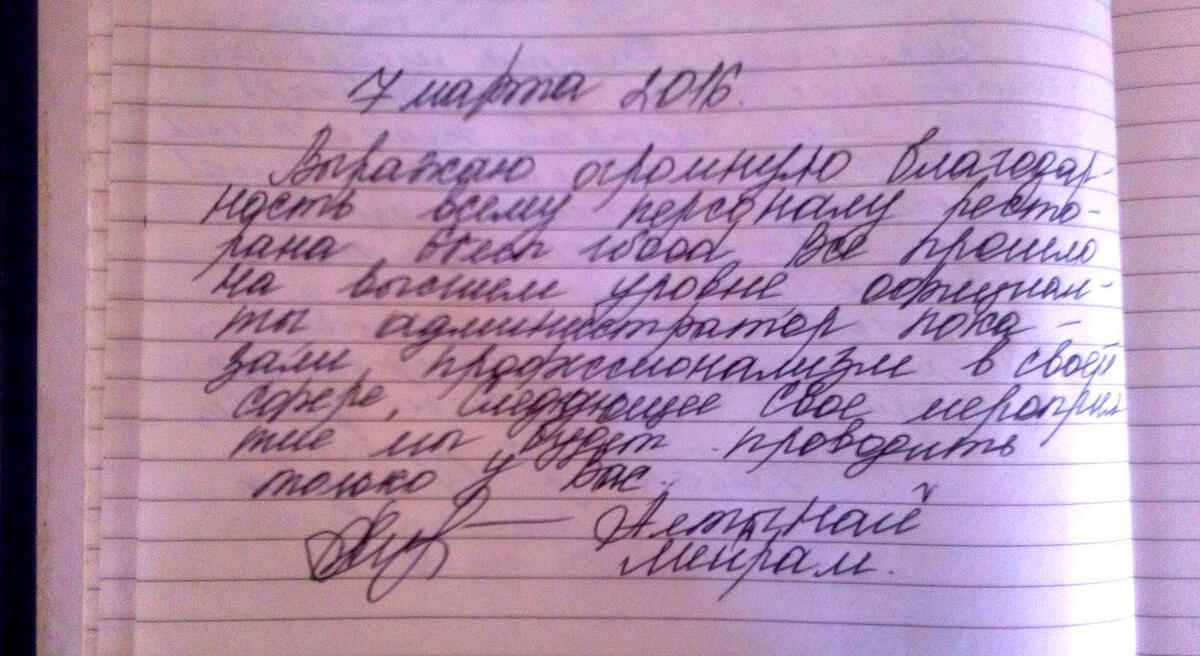 7 марта 2016.
Выражаю огромную благодар-
ность всему персоналу ресто-
рана Все прошло
на высшем уровне официан-
ты администратор пока-
зали профессионализм в своей
сфере. Следующее свое меропри
тие мы будет проводить
только у Вас.
Алтынай
Мейрам.